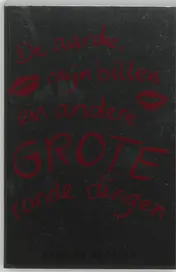 De aarde
mijn billen
en andere
GROTE
ronde dingen